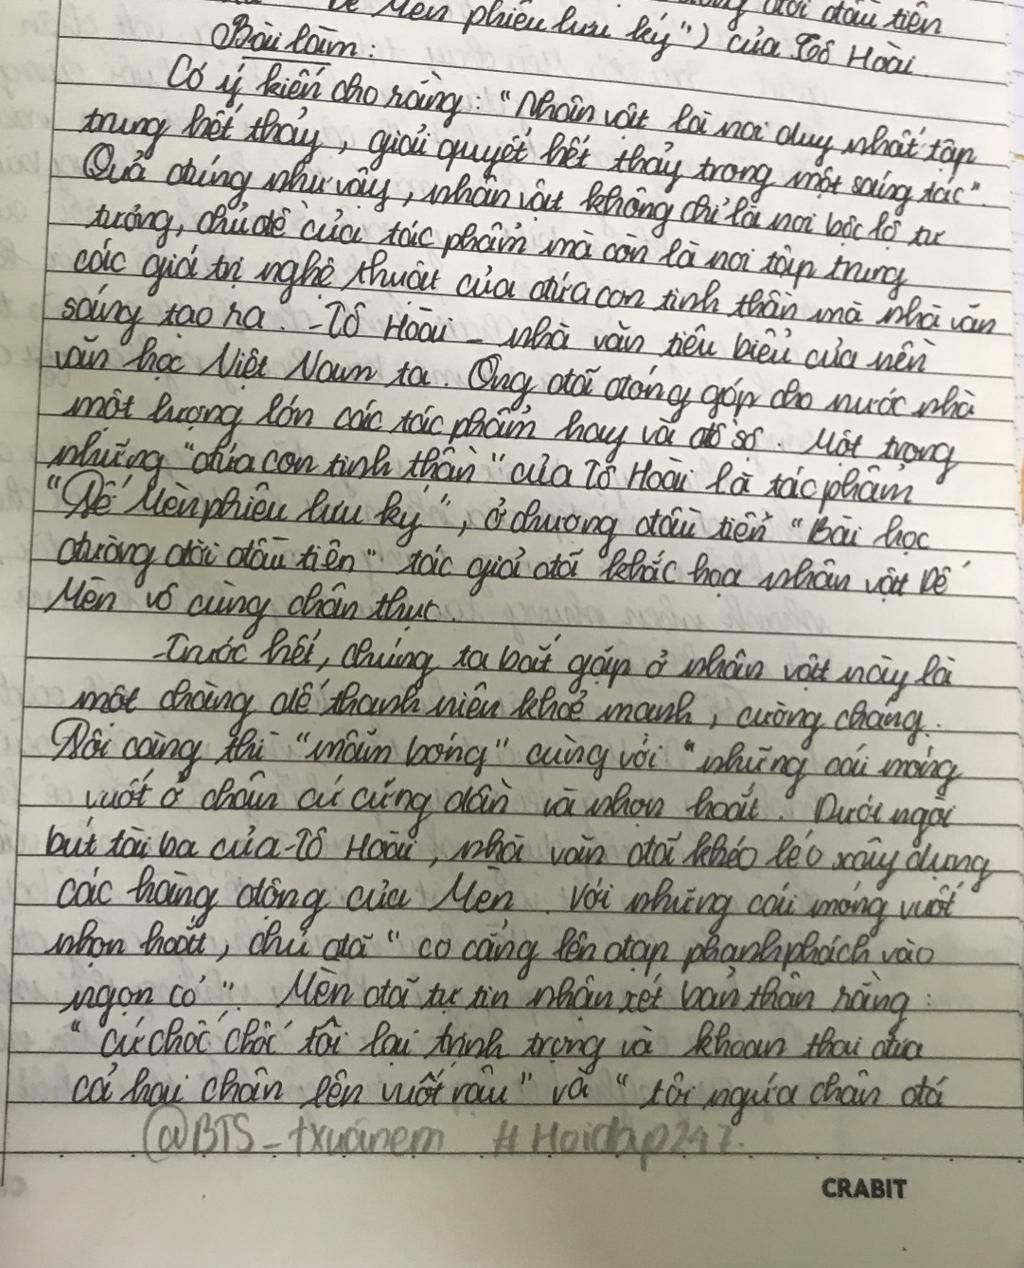 Dế Mèn phiêu lưu ký") của Tô Hoài
đời đầu tiên
Bài làm:
Có ý kiến cho rằng: "Nhân vật là nơi duy nhất tập
trung hết thảy, giải quyết hết thảy trong một sáng tác".
Quả đúng như vậy, nhân vật không chỉ là nơi bộc lộ tư
tưởng, chủ đề của tác phẩm mà còn là nơi tập trung
các giá trị nghệ thuật của đứa con tinh thần mà nhà văn
sáng tạo ra. Tô Hoài - nhà văn tiêu biểu của nền
văn học Việt Nam ta. Ông đã đóng góp cho nước nhà
một lượng lớn các tác phẩm hay và đồ sộ. Một trong
những "đứa con tinh thần" của Tô Hoài là tác phẩm
"Dế Mèn phiêu lưu ký", ở chương đầu tiên "Bài học
đường đời đầu tiên" tác giả đã khắc họa nhân vật Dế
Mèn vô cùng chân thực.
Trước hết, chúng ta bắt gặp ở nhân vật này là
một chàng dế thanh niên khoẻ mạnh, cường tráng.
Đôi càng thì "mẫm bóng" cùng với "những cái móng
vuốt ở chân cứ cứng dần và nhọn hoắt. Dưới ngòi
bút tài ba của Tô Hoài, nhà văn đã khéo léo xây dựng
các hành động của Mèn. Với những cái móng vuốt
nhọn hoắt, chú đã "co cẳng lên đạp phanh phách vào
ngọn cỏ". Mèn đã tự tin nhận xét bản thân rằng:
"cứ chốc chốc tôi lại trịnh trọng và khoan thai đưa
cả hai chân lên vuốt râu" và "tôi ngứa chân đá
@BTS_txuanem #Hoidap247.
CRABIT